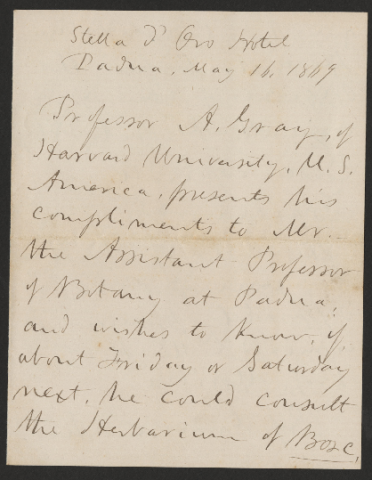 Stella d'Oro Hotel
Padua, May 16, 1869
Professor A. Gray, of
Harvard University, U. S.
America, presents his
compliments to Mr.
the Assistant Professor
of Botany at Padua;
and wishes to know, if,
about Friday or Saturday
next, he could consult
the Herbarium of Bosc,